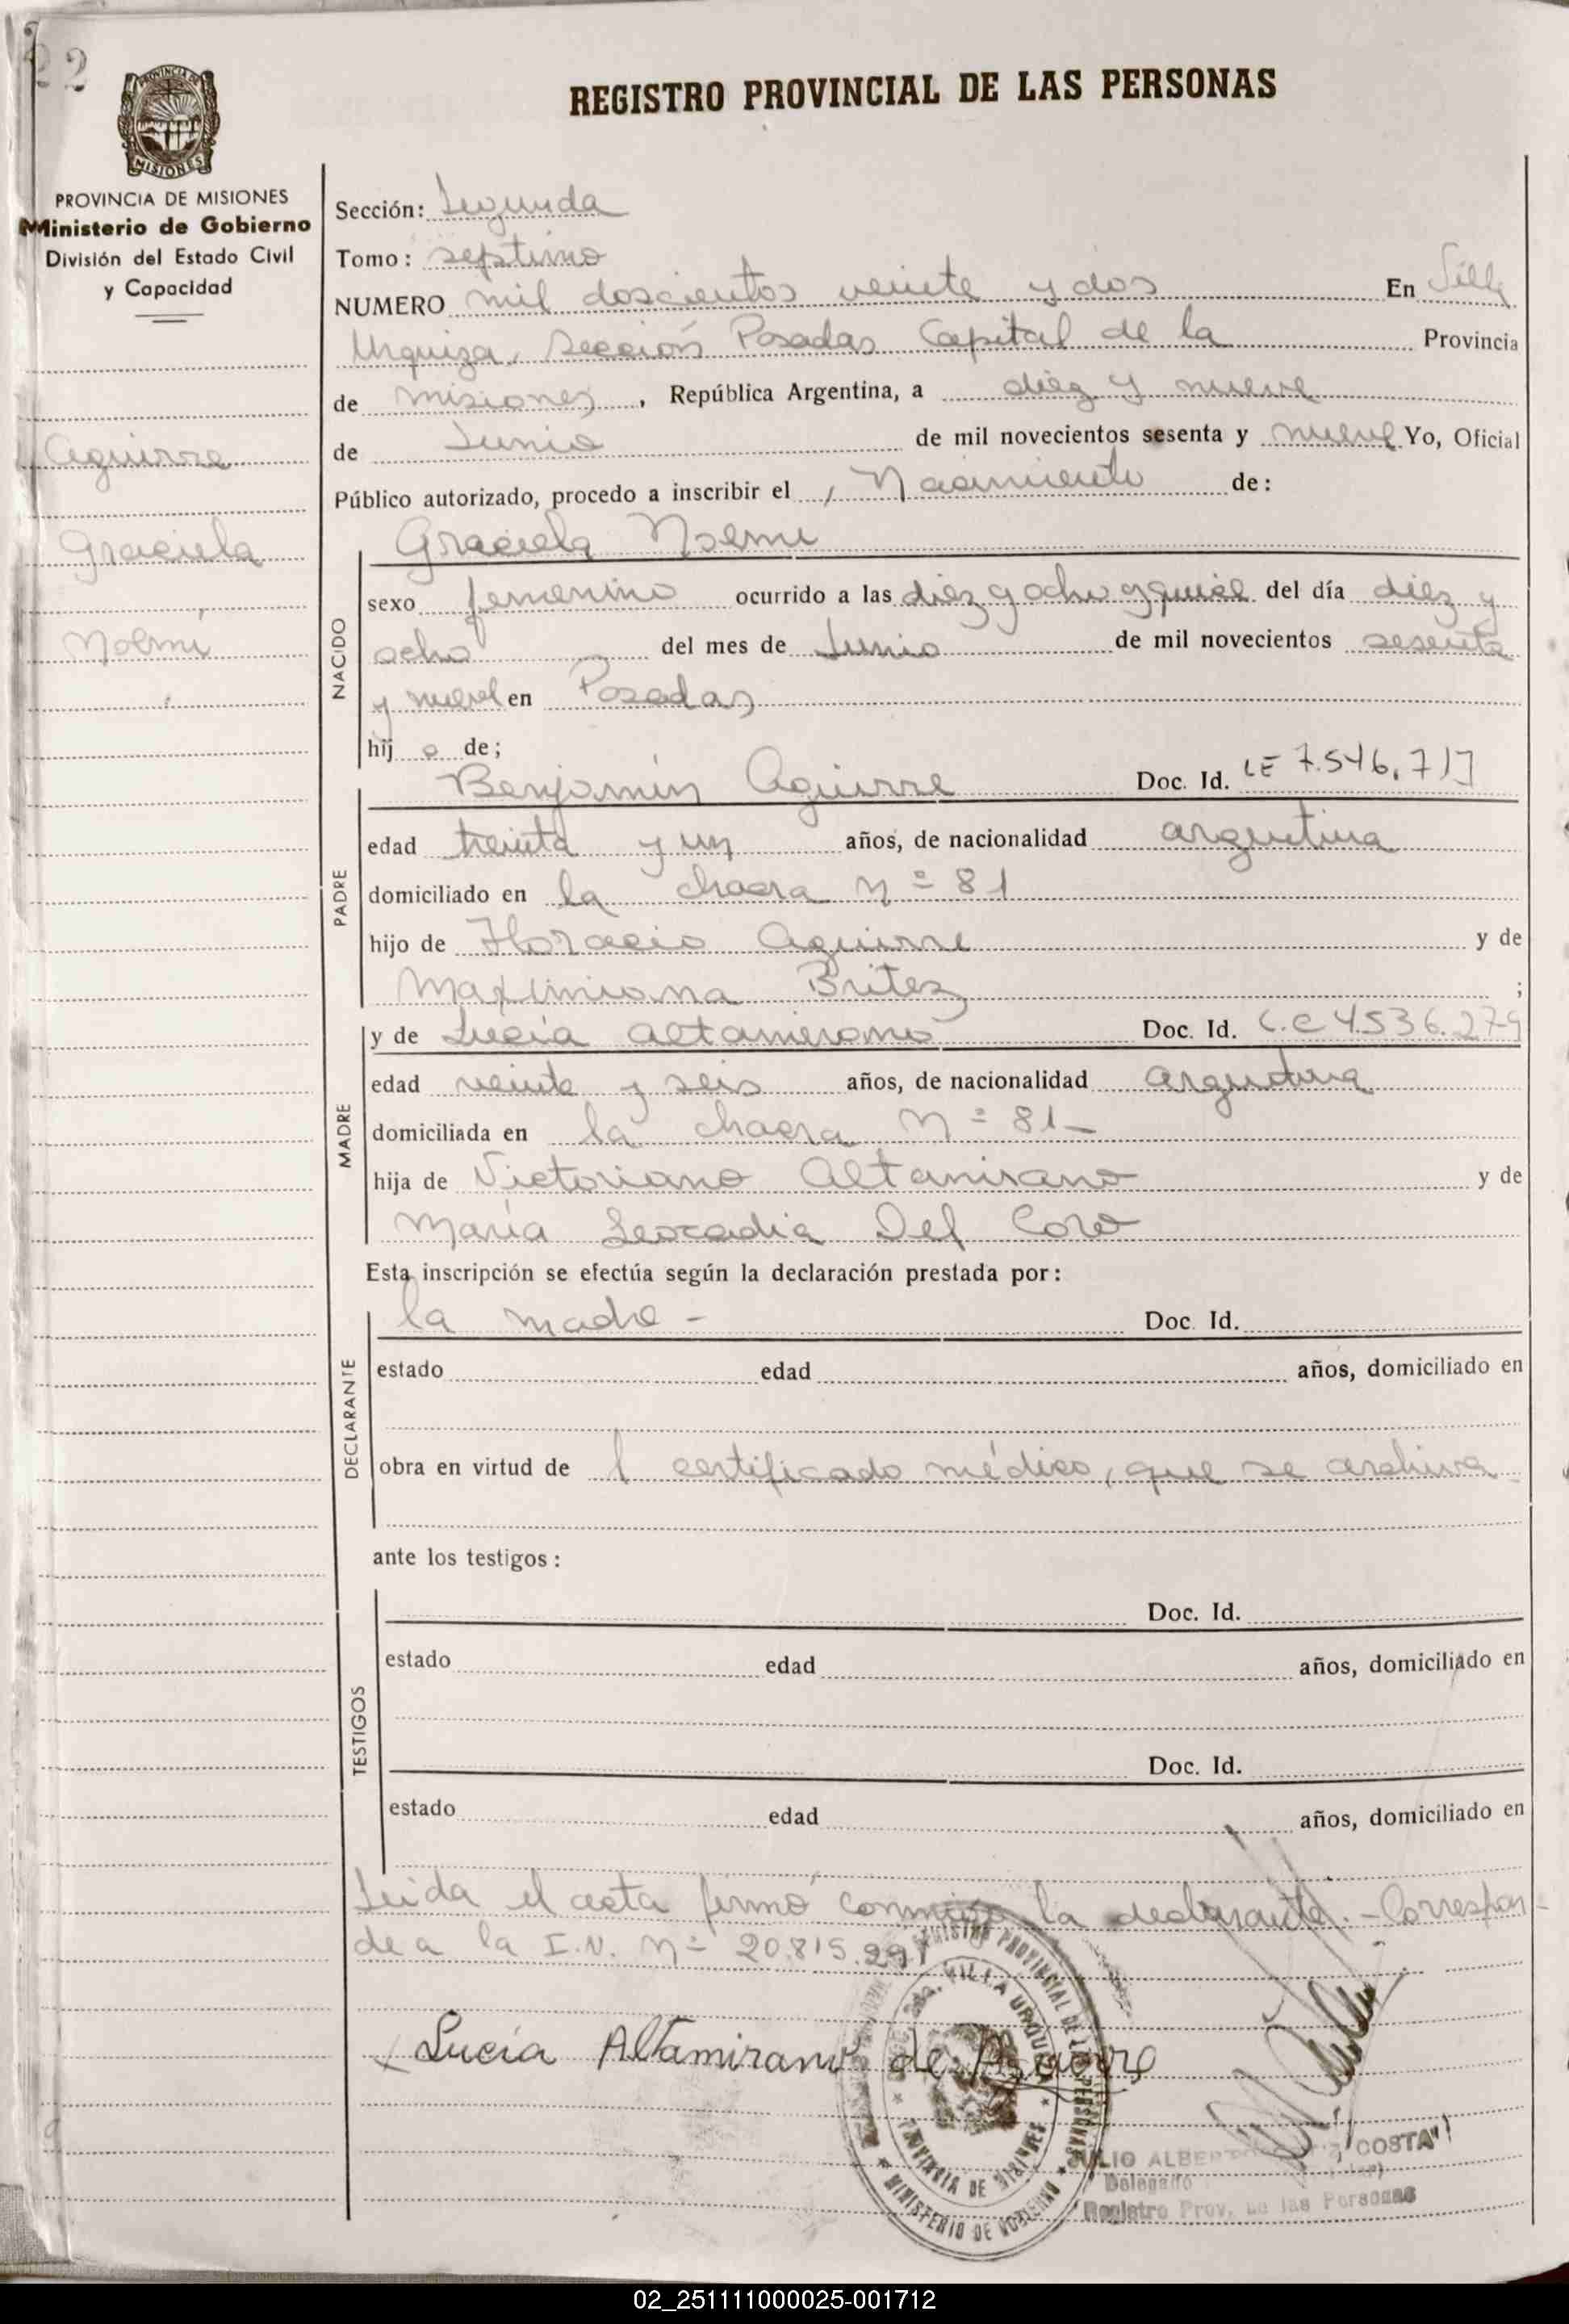 22
REGISTRO PROVINCIAL DE LAS PERSONAS
MISIONES
PROVINCIA DE MISIONES
Ministerio de Gobierno
División del Estado Civil
y Capacidad
Aguirre
Graciela
Noemi
Sección: Segunda
Tomo: septimo
NUMERO mil doscientos veinte y dos En Villa
Urquiza, Sección Posadas Capital de la Provincia
de misiones, República Argentina, a diez y nueve
de Junio de mil novecientos sesenta y nueve Yo, Oficial
Público autorizado, procedo a inscribir el Nacimiento de:
NACIDO
Graciela Noemi
sexo femenino ocurrido a las diez y ocho y quice del día diez y
ocho del mes de Junio de mil novecientos sesenta
y nueve en Posadas
hij a de;
PADRE
Benjamín Aguirre Doc. Id. LE 7.546.717
edad treinta y un años, de nacionalidad argentina
domiciliado en la chacra Nº 81
hijo de Horacio Aguirre y de
Maximiana Britez ;
MADRE
y de Lucía Altamirano Doc. Id. L.C 4.536.279
edad veinte y seis años, de nacionalidad argentina
domiciliada en la chacra Nº 81-
hija de Victoriano Altamirano y de
María Leocadia Del Coro
Esta inscripción se efectúa según la declaración prestada por:
DECLARANTE
la madre - Doc. Id.
estado edad años, domiciliado en
obra en virtud de 1 certificado médico, que se archiva-
ante los testigos:
TESTIGOS
Doc. Id.
estado edad años, domiciliado en
Doc. Id.
estado edad años, domiciliado en
Leida el acta firmó conmigo la declarante.- Correspon-
de a la I.N. Nº 20.815.291
Lucía Altamirano de Aguirre
REGISTRO PROVINCIAL DE LAS PERSONAS
VILLA URQUIZA
PROVINCIA DE MISIONES
MINISTERIO DE GOBIERNO
JULIO ALBERTO COSTA
Delegado
Registro Prov. de las Personas
02_251111000025-001712